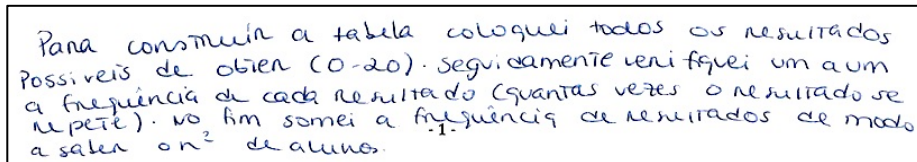 Para construir a tabela coloquei todos os resultados
possiveis de obter (0-20). Seguidamente verifiquei um a um
a frequência de cada resultado (quantas vezes o resultado se
repete). No fim somei a frequência de resultados de modo
-1-
a saber o nº de alunos.